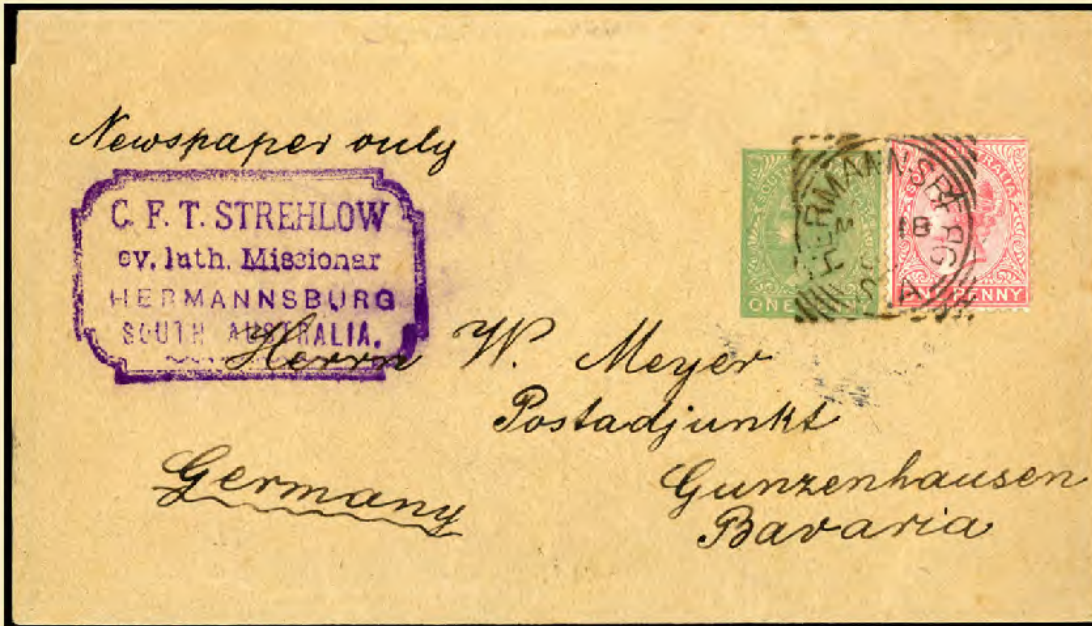 Newspaper only
C. F. T. STREHLOW
ev. luth. Missionar
HERMANNSBURG
SOUTH AUSTRALIA.
SOUTH
ONE
AUSTRALIA
ONE PENNY
HERMANNSBERG
18
Herrn W. Meyer
Postadjunkt
Gunzenhausen
Bavaria
Germany